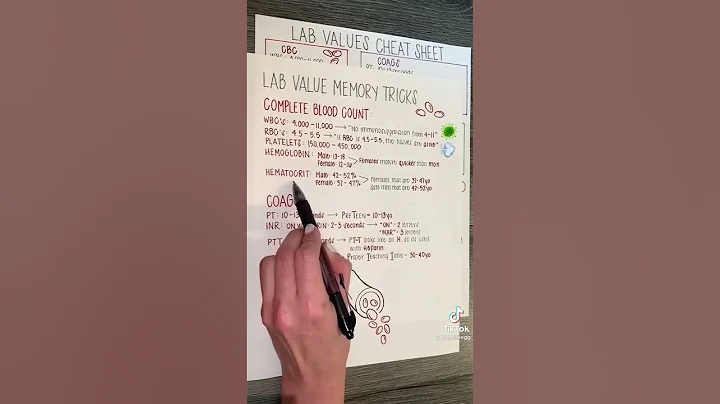 LAB VALUES CHEAT SHEET
CBC
COAGS
LAB VALUE MEMORY TRICKS
COMPLETE BLOOD COUNT:
WBC's: 4,000-11,000 → "No immunosuppression from 4-11"
RBC's: 4.5-5.5 → "If RBC if 4.5-5.5, the tissues are alive"
PLATELETS: 150,000 - 450,000
HEMOGLOBIN: Male: 13-18
Female: 12-16
Females mature quicker than men
HEMATOCRIT: Male: 42-52%
Female: 37-47%
Females that are 37-47yo
date men that are 42-52yo
COAG
PT: 10-13 → PreTeen = 10-13yo
INR: ON 2-3 seconds → "ON" = 2 letters
"WAR" = 3 letters
PTT → PT-T looks like an H, so its used
with Heparin
Proper Teaching Time = 30-40yo
TikTok